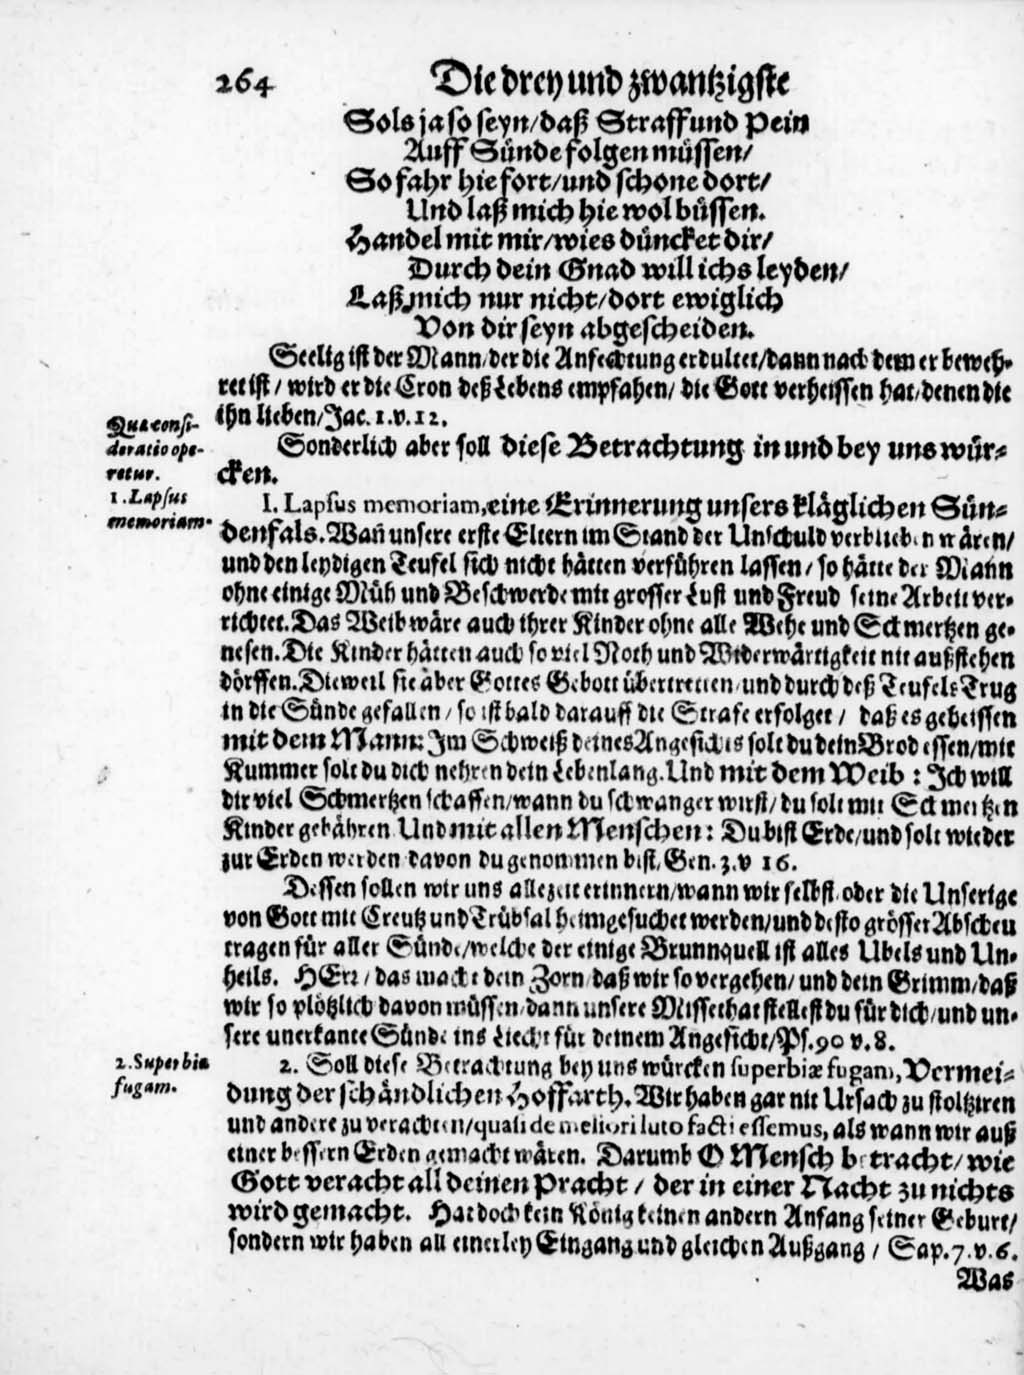 264 Die drey und zwantzigste
Sols ja so seyn/daß Straff und Pein
Auff Sünde folgen müssen/
So fahr hie fort/und schone dort/
Und laß mich hie wol büssen.
Handel mit mir/wies düncket dir/
Durch dein Gnad will ichs leyden/
Laß mich nur nicht/dort ewiglich
Von dir seyn abgescheiden.
Seelig ist der Mann/der die Anfechtung erdultet/dann nach dem er beweh-
ret ist/wird er die Cron deß Lebens empfahen/die Gott verheissen hat/denen die
ihn lieben/Jac. 1. v. 12.
Quæ consi-
deratio ope-
retur.
Sonderlich aber soll diese Betrachtung in und bey uns wür-
cken.
1. Lapsus
memoriam.
I. Lapsus memoriam, eine Erinnerung unsers kläglichen Sün-
denfals. Wañ unsere erste Eltern im Stand der Unschuld verblieben wären/
und den leydigen Teufel sich nicht hätten verführen lassen/so hätte der Mann
ohne einige Müh und Beschwerde mit grosser Lust und Freud seine Arbeit ver-
richtet. Das Weib wäre auch ihrer Kinder ohne alle Wehe und Schmertzen ge-
nesen. Die Kinder hätten auch so viel Noth und Widerwärtigkeit nit außstehen
dörffen. Dieweil sie aber Gottes Gebott übertretten/und durch deß Teufels Trug
in die Sünde gefallen/so ist bald darauff die Strafe erfolget/daß es geheissen
mit dem Mann: Im Schweiß deines Angesichts solt du dein Brod essen/mit
Kummer solt du dich nehren dein Lebenlang. Und mit dem Weib: Ich will
dir viel Schmertzen schaffen/wann du schwanger wirst/du solt mit Schmertzen
Kinder gebähren. Und mit allen Menschen: Du bist Erde/und solt wieder
zur Erden werden/davon du genommen bist, Gen. 3. v 16.
Dessen sollen wir uns allezeit erinnern/wann wir selbst oder die Unserige
von Gott mit Creutz und Trübsal heimgesuchet werden/und desto grösser Abscheu
tragen für aller Sünde/welche der einige Brunnquell ist alles Ubels und Un-
heils. HErr/das macht dein Zorn/daß wir so vergehen/und dein Grimm/daß
wir so plötzlich davon müssen/dann unsere Missethat stellest du für dich/und un-
sere unerkante Sünde ins Liecht für deinem Angesicht/Ps. 90 v. 8.
2. Superbiæ
fugam.
2. Soll diese Betrachtung bey uns würcken superbiæ fugam, Vermei-
dung der schändlichen Hoffarth. Wir haben gar nit Ursach zu stoltziren
und andere zu verachten/quasi de meliori luto facti essemus, als wann wir auß
einer bessern Erden gemacht wären. Darumb O Mensch betracht/wie
Gott veracht all deinen Pracht/der in einer Nacht zu nichts
wird gemacht. Hat doch kein König keinen andern Anfang seiner Geburt/
sondern wir haben all einerley Eingang und gleichen Außgang/Sap. 7. v. 6.
Was